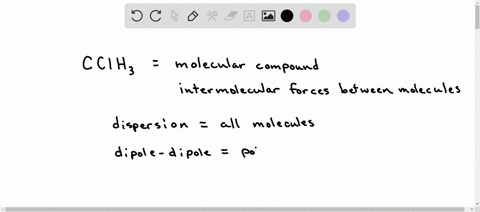 CClH3 = molecular compound
intermolecular forces between molecules
dispersion = all molecules
dipole-dipole = po